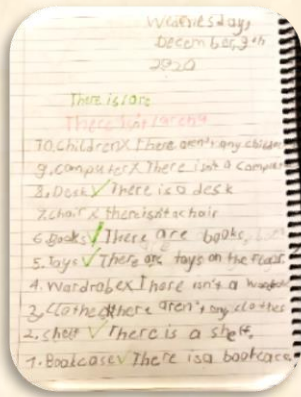 Wednesday,
December, 9th
2020
There is/are
There isn't/aren't
10. Children X There aren't any children
9. computer X There isn't a computer
8. Desk ✓ There is a desk
7. chair X there isn't a chair
6. Books ✓ There are books,
5. Toys ✓ There are toys on the
4. Wardrobe X There isn't a
3. Clothes X there aren't any clothes
2. shelf ✓ There is a shelf.
1. Bookcase ✓ There is a bookcace.